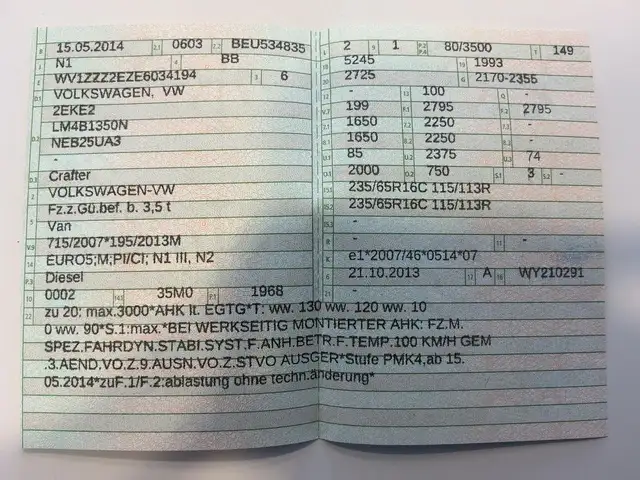 B 15.05.2014 2.1 0603 2.2 BEU534835
J N1 4 BB
E WV1ZZZ2EZE6034194 3 6
D.1 VOLKSWAGEN, VW
2EKE2
D.2 LM4B1350N
NEB25UA3
-
D.3 Crafter
2 VOLKSWAGEN-VW
5 Fz.z.Gü.bef. b. 3,5 t
Van
V.9 715/2007*195/2013M
14 EURO5;M;PI/CI; N1 III, N2
P.3 Diesel
10 0002 14.1 35M0 P.1 1968
L 2 9 1 P.2 P.4 80/3500 T 149
18 5245 19 1993
20 2725 G 2170-2355
12 - 13 100 Q -
V.7 199 F.1 2795 F.2 2795
7.1 1650 7.2 2250 -
8.1 1650 8.2 2250 -
U.1 85 U.2 2375 U.3 74
O.1 2000 O.2 750 S.1 3 S.2 -
15.1 235/65R16C 115/113R
15.2 235/65R16C 115/113R
15.3 -
R - 11 -
K e1*2007/46*0514*07
6 21.10.2013 17 A 16 WY210291
21 -
22 zu 20: max.3000*AHK lt. EGTG*T: ww. 130 ww. 120 ww. 10
0 ww. 90*S.1:max.*BEI WERKSEITIG MONTIERTER AHK: FZ.M.
SPEZ.FAHRDYN.STABI.SYST.F.ANH.BETR.F.TEMP.100 KM/H GEM
.3.AEND.VO.Z.9.AUSN.VO.Z.STVO AUSGER*Stufe PMK4,ab 15.
05.2014*zuF.1/F.2:ablastung ohne techn.änderung*